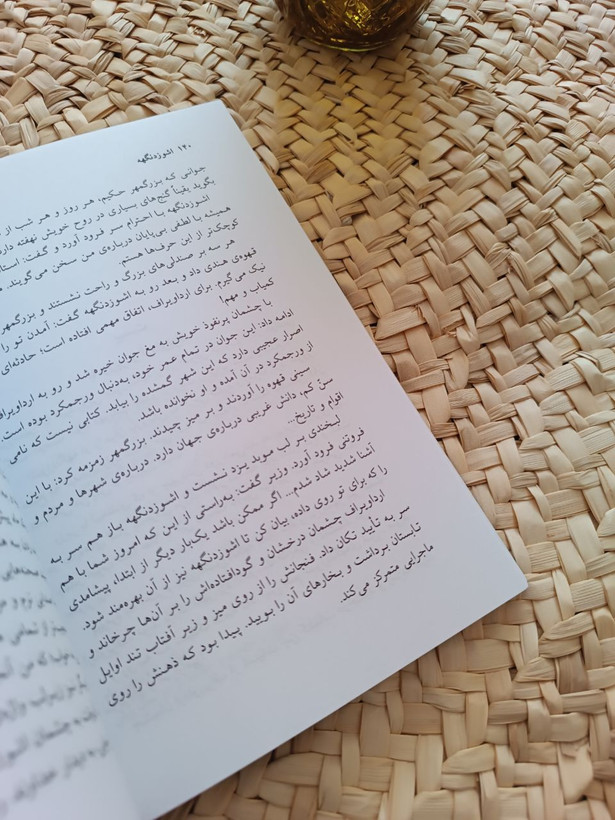 ۱۲۰ اشوزدنگهه
جوانی که بزرگمهر حکیم، هر روز و هر شب از
بگوید یقیناً گنج‌های بسیاری در روح خویش نهفته دارد
اشوزدنگهه با احترام سر فرود آورد و گفت: استا
همیشه با لطفی بی‌پایان درباره‌ی من سخن می‌گویند.
کوچک‌تر از این حرف‌ها هستم.
هر سه بر صندلی‌های بزرگ و راحت نشستند و بزرگمهر
قهوه‌ی هندی داد و بعد رو به اشوزدنگهه گفت: آمدن تو را
نیک می‌گیرم. برای ارداویراف، اتفاق مهمی افتاده است؛ حادثه‌ای
کمیاب و مهم!
با چشمان پرنفوذ خویش به مغ جوان خیره شد و رو به ارداویراف
ادامه داد: این جوان در تمام عمر خود، به‌دنبال ورجمکرد بوده است.
اصرار عجیبی دارد که این شهر گمشده را بیابد. کتابی نیست که نامی
از ورجمکرد در آن آمده و او نخوانده باشد.
سینی قهوه را آوردند و بر میز چیدند. بزرگمهر زمزمه کرد: با این
سنّ کم، دانش غریبی درباره‌ی جهان دارد. درباره‌ی شهرها و مردم و
اقوام و تاریخ...
لبخندی بر لب موبد یزد نشست و اشوزدنگهه باز هم سر به
فروتنی فرود آورد. وزیر گفت: به‌راستی از این که امروز شما با هم
آشنا شدید شاد شدم... اگر ممکن باشد یک‌بار دیگر از ابتدا، پیشامدی
را که برای تو روی داده، بیان کن تا اشوزدنگهه نیز از آن بهره‌مند شود
ارداویراف چشمان درخشان و گودافتاده‌اش را بر آن‌ها چرخاند و
سر به تأیید تکان داد. فنجانش را از روی میز و زیر آفتاب تند اوایل
تابستان برداشت و بخارهای آن را بویید. پیدا بود که ذهنش را روی
ماجرایی متمرکز می‌کند.